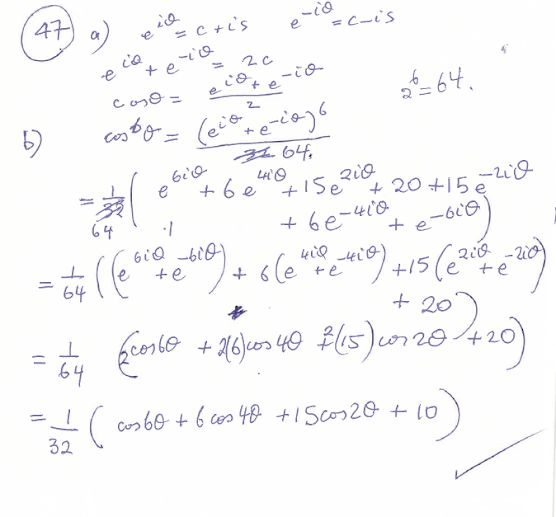 47 a) e^{iθ} = c + is   e^{-iθ} = c - is
e^{iθ} + e^{-iθ} = 2c
cosθ = (e^{iθ} + e^{-iθ}) / 2   2^6 = 64.
b) cos^6θ = (e^{iθ} + e^{-iθ})^6 / 64.
= 1/64 ( e^{6iθ} + 6e^{4iθ} + 15e^{2iθ} + 20 + 15e^{-2iθ}
+ 6e^{-4iθ} + e^{-6iθ} )
= 1/64 ( (e^{6iθ} + e^{-6iθ}) + 6(e^{4iθ} + e^{-4iθ}) + 15(e^{2iθ} + e^{-2iθ})
+ 20 )
= 1/64 ( 2cos6θ + 2(6)cos4θ + 2(15)cos2θ + 20 )
= 1/32 ( cos6θ + 6cos4θ + 15cos2θ + 10 )